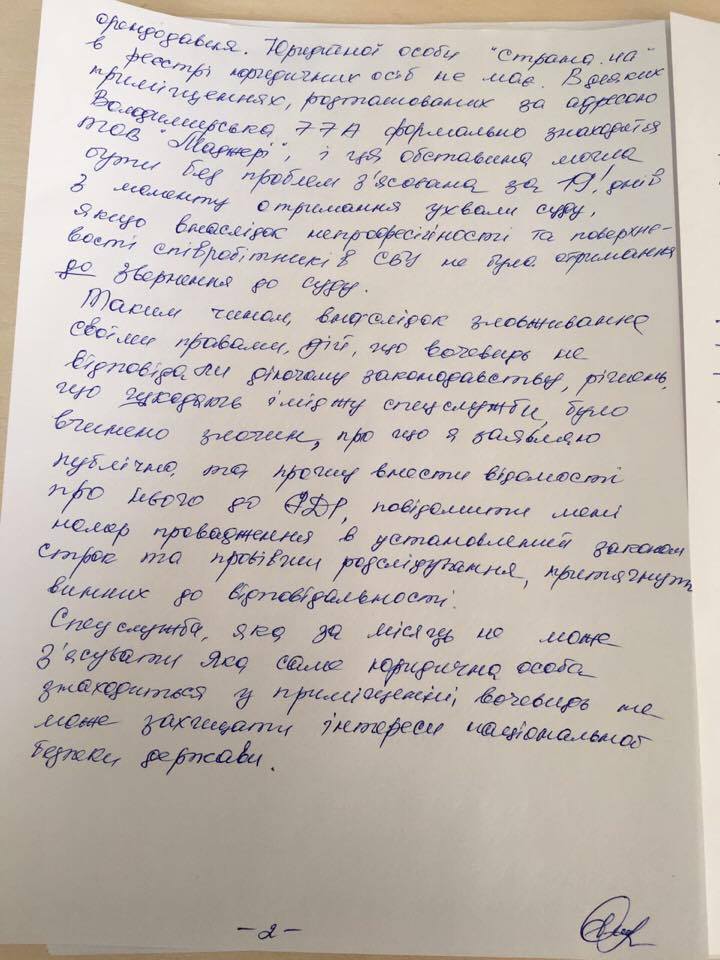 орендодавця. Юридичної особи "Страна.иа"
в реєстрі юридичних осіб не має. В деяких
приміщеннях, розташованих за адресою
Володимирська 77А формально знаходится
ТОВ "Маджері", і ця обставина могла
бути без проблем з'ясована за 19! днів
з моменту отримання ухвали суду,
якщо внаслідок непрофесійності та поверхне-
вості співробітників СБУ не було отримання
до звернення до суду.
Таким чином, внаслідок зловживання
своїми правами, дій, що вочевидь не
відповідали діючому законодавству, рішень,
що шкодять іміджу спецслужби, було
вчинено злочин, про що я заявляю
публічно, та прошу внести відомості
про нього до ЄРДР, повідомити мені
номер провадження в установлений законом
строк та провівши розслідування, притягнути
винних до відповідальності.
Спецслужба, яка за місяць не може
з'ясувати яка саме юридична особа
знаходиться у приміщенні, вочевидь не
може захищати інтереси національної
безпеки держави.
-2-